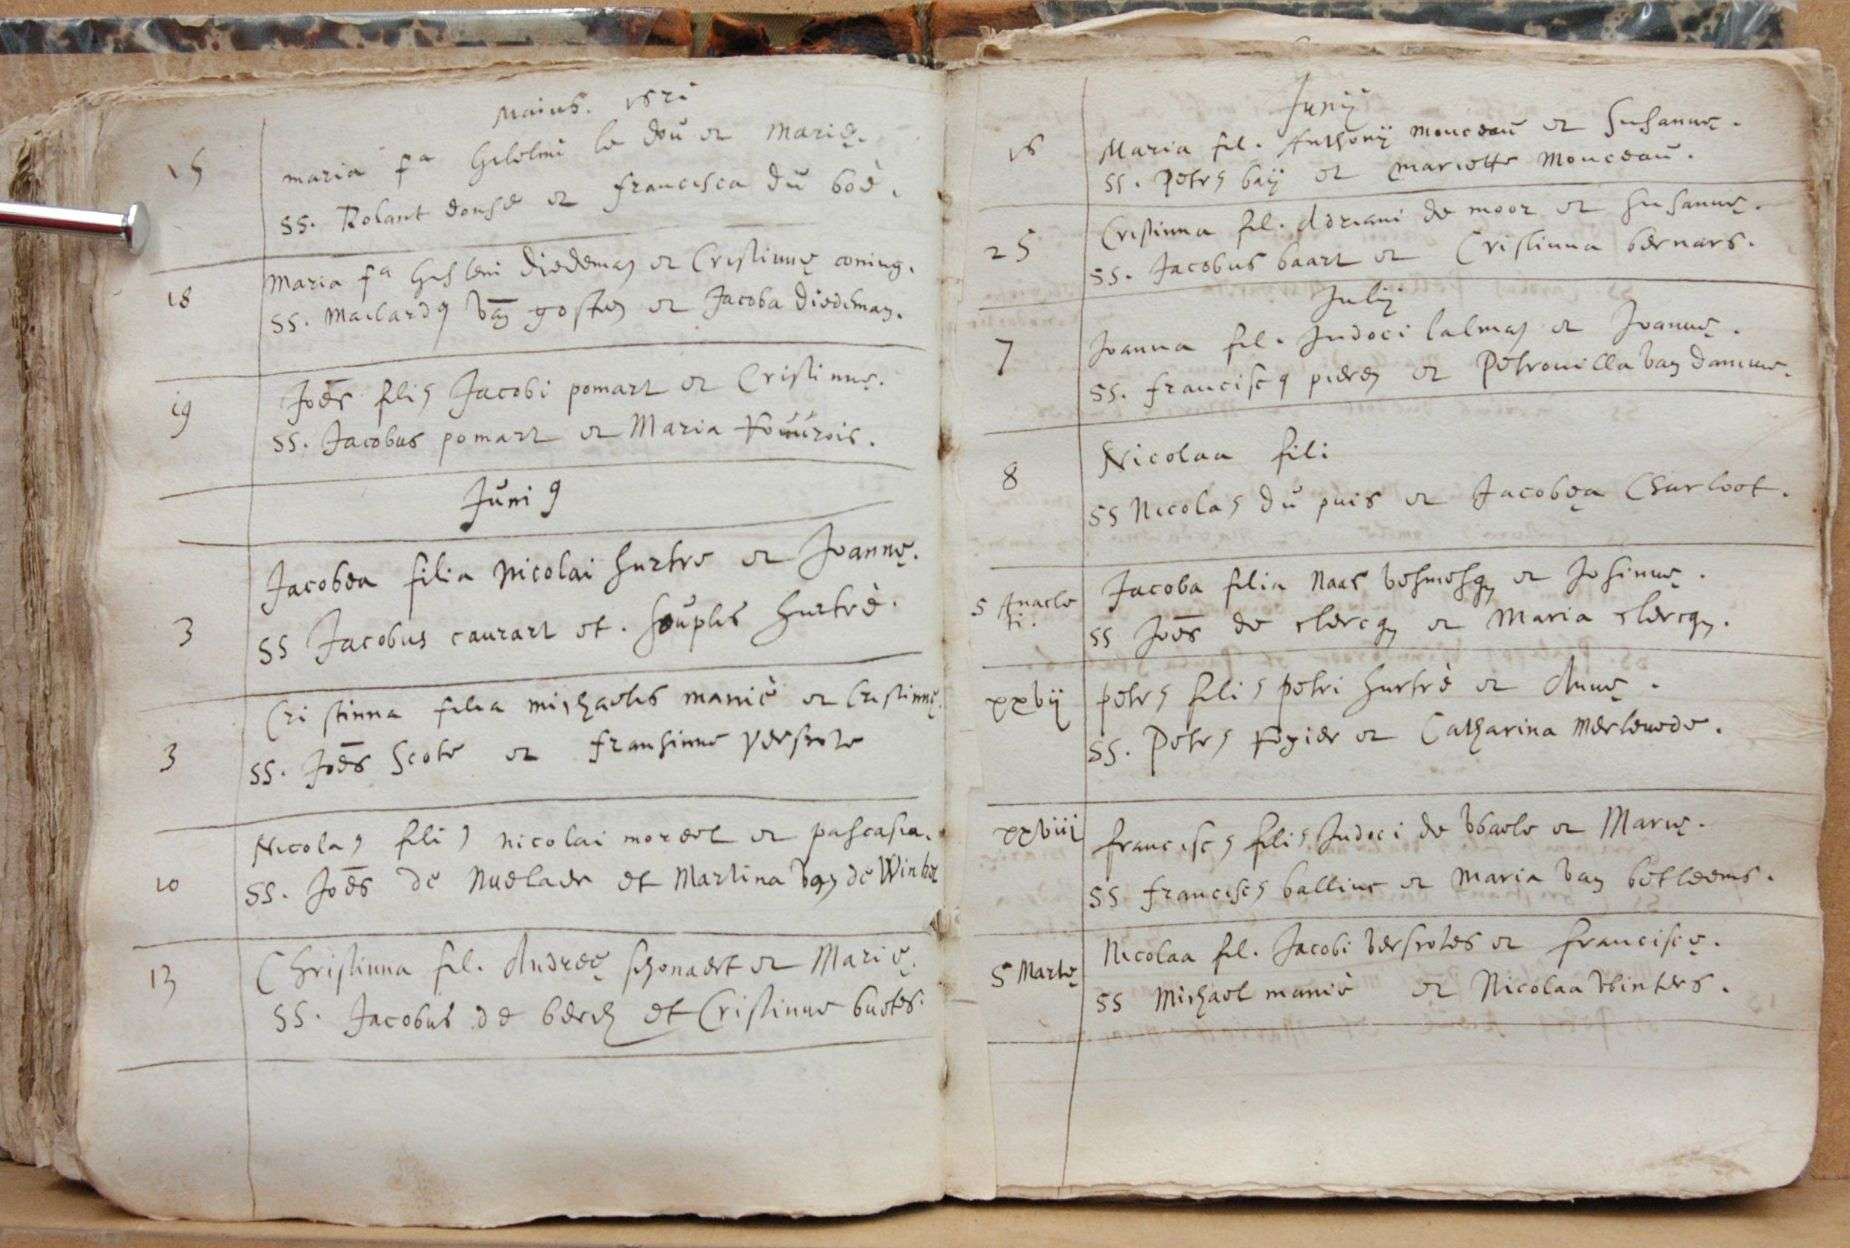 Maius. 1621
15 maria fa Gislelmi le dou et Marię.
ss. Rolant donse et francisca dú boè.
18 Maria fa Gisleni Diedeman et Cristinnę coniug.
ss. Mailardus van gosten et Jacoba diedeman.
19 Joēs filius Jacobi pomart et Cristinnę.
ss. Jacobus pomart et Maria
Június
3 Jacobea filia Nicolai hurtre et Joannę.
ss Jacobus caurart et. Souplis hurtrè.
3 Cristinna filia michaelis maniè et Cristinnę.
ss. Joēs Scote et fransinne
10 Nicolaus filius nicolai moreel et pascasia.
ss. Joēs de Nuelaer et Martina van de Winkel
13 Christinna fil. Andreę schonaert et Marię.
ss. Jacobus de beren et Cristinne buetes.
Junij
16 Maria fil. Anthonij monceaú et Susannę.
ss. Petrus baij et mariette Monceaú.
25 Cristinna fil. Adriani de moor et Susannę.
ss. Jacobus baart et Cristinna bernars.
Julij
7 Joanna fil. Judoci lalman et Joannę.
ss. franciscus pieren et Petronilla van damme.
8 Nicolaa fili
ss Nicolas dú puis et Jacobęa Charloot.
5 Anacleti. Jacoba filia Naas et Josinnę.
ss Joēs de clercq et Maria clercq.
xxvij petrus filius petri hurtrè et Annę.
ss. Petrus Rogier et Catharina Merlevede.
xxviij franciscus filius Judoci de Vbaele et Marię.
ss franciscus ballinc et Maria van betleems.
5 Martę Nicolaa fil. Jacobi et franciscę.
ss Michael maniè et Nicolaa Vbinters.